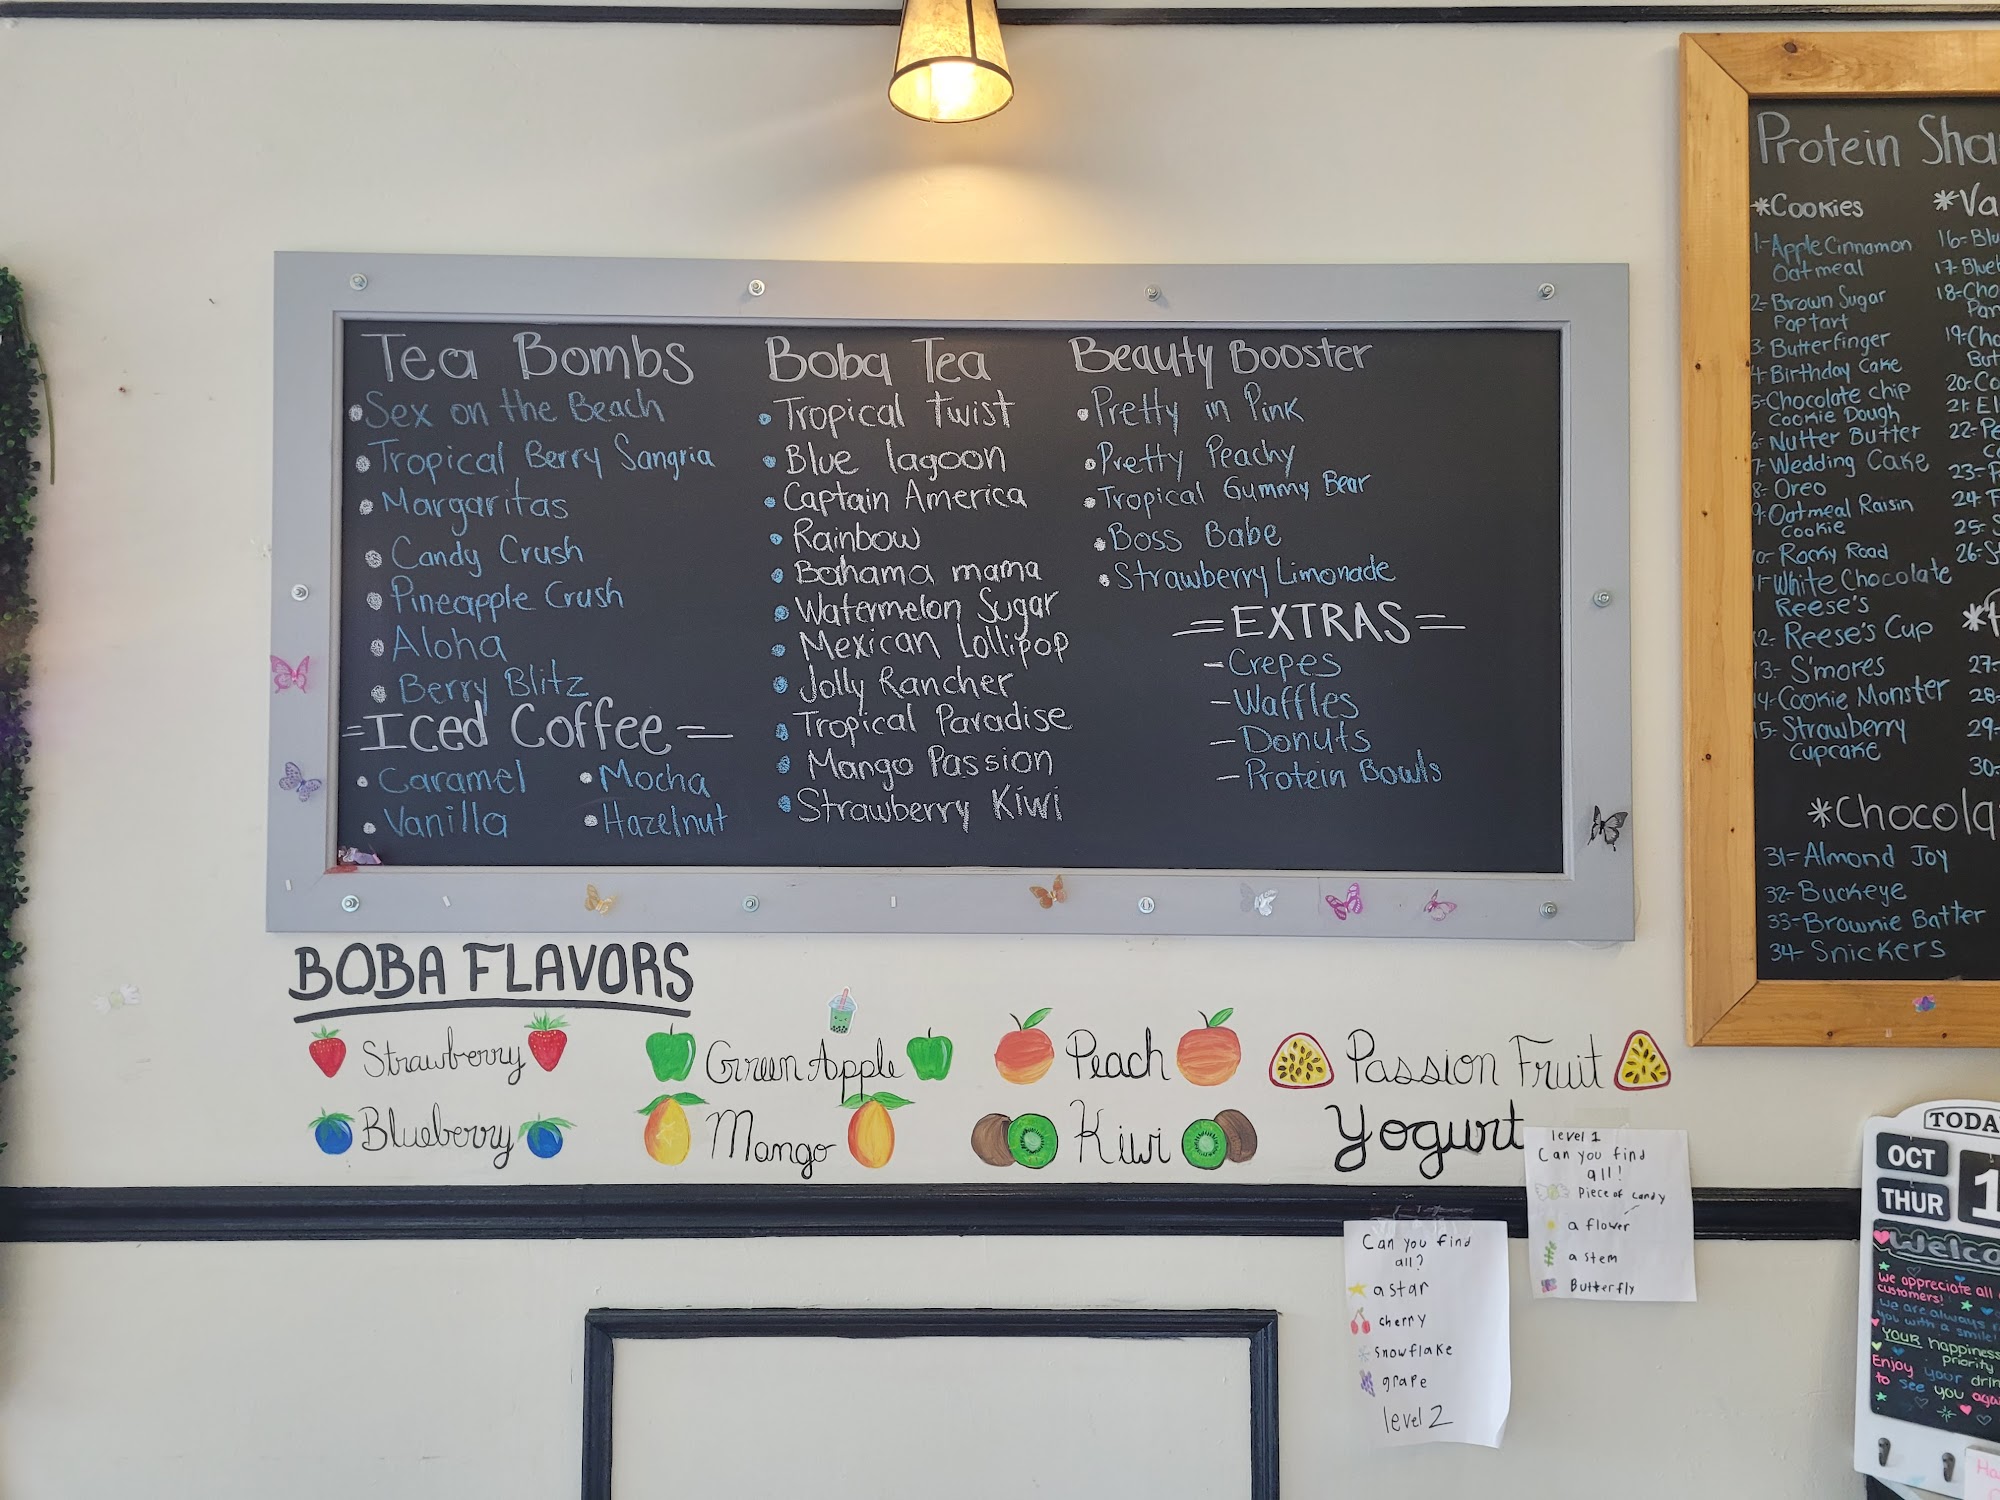 Tea Bombs
Sex on the Beach
Tropical Berry Sangria
Margaritas
Candy Crush
Pineapple Crush
Aloha
Berry Blitz
=Iced Coffee=
Caramel
Vanilla
Mocha
Hazelnut
Boba Tea
Tropical Twist
Blue lagoon
Captain America
Rainbow
Bahama mama
Watermelon Sugar
Mexican Lollipop
Jolly Rancher
Tropical Paradise
Mango Passion
Strawberry Kiwi
Beauty Booster
Pretty in Pink
Pretty Peachy
Tropical Gummy Bear
Boss Babe
Strawberry Limonade
=EXTRAS=
-Crepes
-Waffles
-Donuts
-Protein Bowls
Protein Sha
*Cookies
1-Apple Cinnamon
Oatmeal
2-Brown Sugar
Poptart
3-Butterfinger
4-Birthday Cake
5-Chocolate chip
Cookie Dough
6-Nutter Butter
7-Wedding Cake
8-Oreo
9-Oatmeal Raisin
Cookie
10-Rocky Road
11-White Chocolate
Reese's
12-Reese's Cup
13-S'mores
14-Cookie Monster
15-Strawberry
Cupcake
*Va
16-Blu
17-Blueb
18-Cho
19-Cho
But
20-Co
21-El
22-Pe
23-P
24-F
25-S
26-St
27-
28-
29-
30-
*Chocola
31-Almond Joy
32-Buckeye
33-Brownie Batter
34-Snickers
BOBA FLAVORS
Strawberry Green Apple Peach Passion Fruit
Blueberry Mango Kiwi Yogurt
level 1
Can you find
all!
Piece of candy
a flower
a stem
Butterfly
Can you find
all?
a star
cherry
snowflake
grape
level 2
TODA
OCT
THUR
1
Welco
We appreciate all
customers!
we are always
you with a smile!
YOUR happiness
priority
Enjoy your drin
to see you again